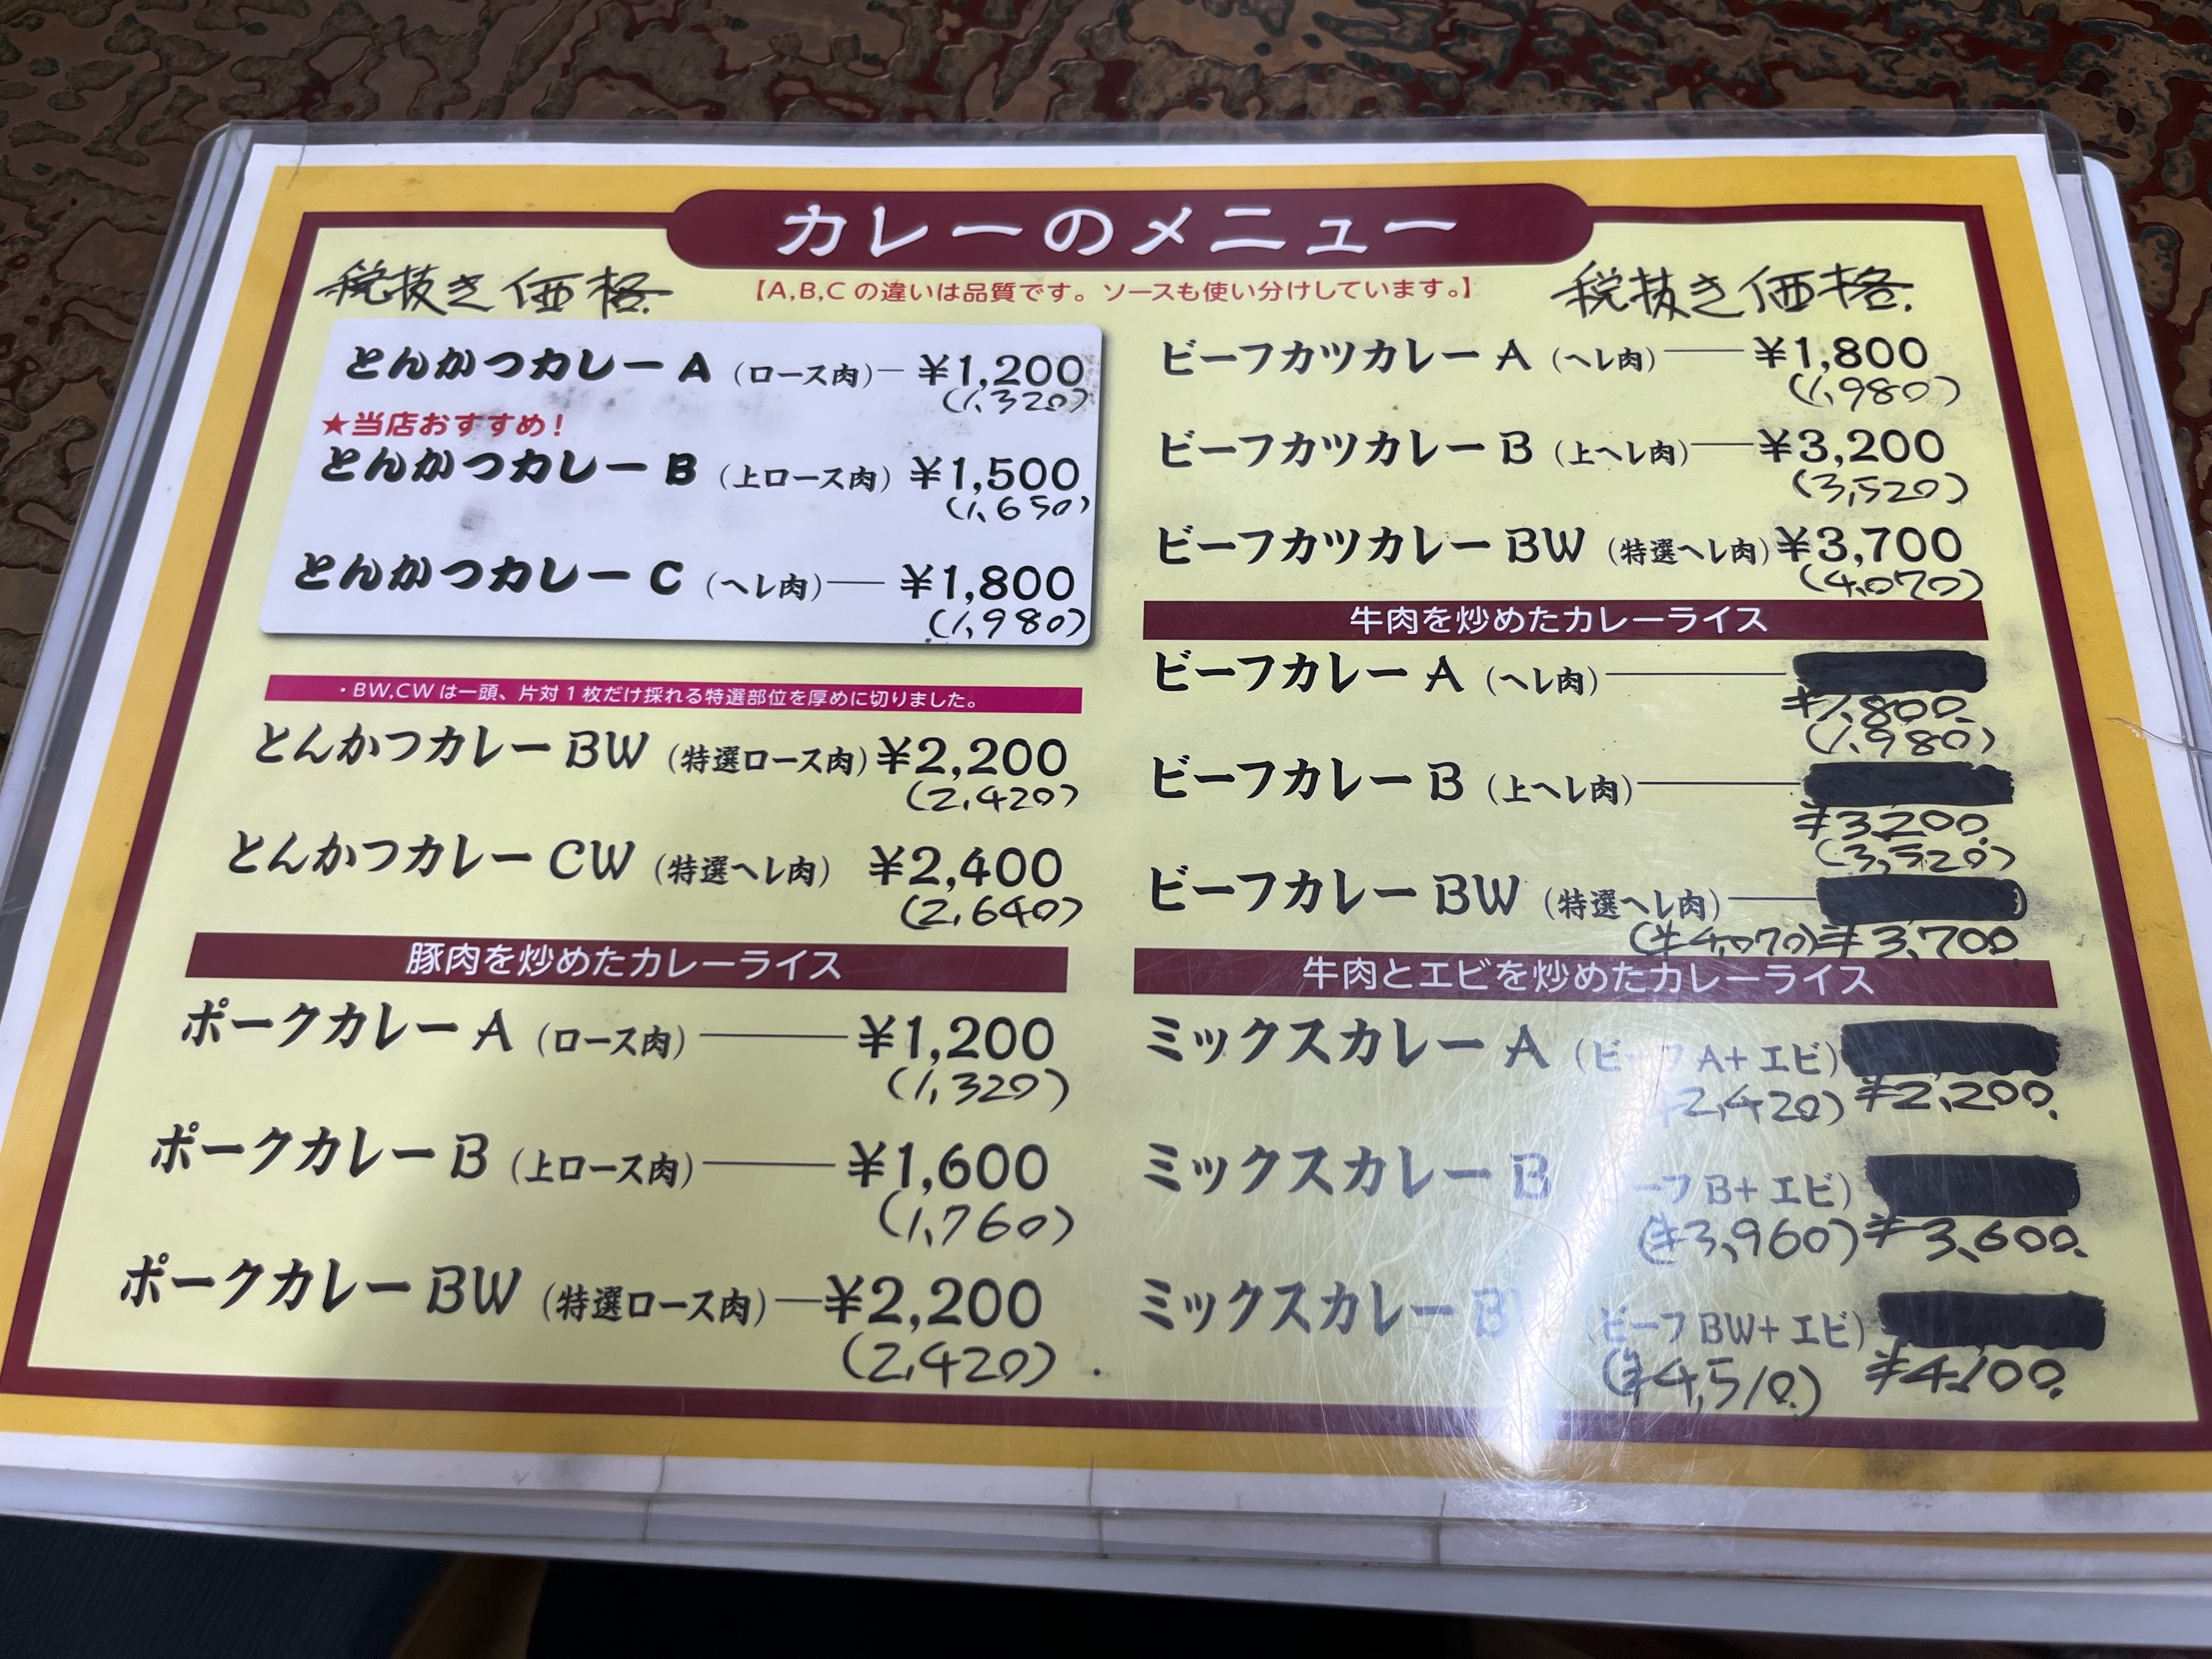 カレーのメニュー
税抜き価格
【A,B,Cの違いは品質です。ソースも使い分けしています。】
税抜き価格.
とんかつカレーA (ロース肉) ¥1,200
(1,320)
★当店おすすめ!
とんかつカレーB (上ロース肉) ¥1,500
(1,650)
とんかつカレーC (ヘレ肉) ¥1,800
(1,980)
・BW,CWは一頭、片対1枚だけ採れる特選部位を厚めに切りました。
とんかつカレーBW (特選ロース肉) ¥2,200
(2,420)
とんかつカレーCW (特選ヘレ肉) ¥2,400
(2,640)
豚肉を炒めたカレーライス
ポークカレーA (ロース肉) ¥1,200
(1,320)
ポークカレーB (上ロース肉) ¥1,600
(1,760)
ポークカレーBW (特選ロース肉) ¥2,200
(2,420)
ビーフカツカレーA (ヘレ肉) ¥1,800
(1,980)
ビーフカツカレーB (上ヘレ肉) ¥3,200
(3,520)
ビーフカツカレーBW (特選ヘレ肉) ¥3,700
(4,070)
牛肉を炒めたカレーライス
ビーフカレーA (ヘレ肉)
¥1,800.
(1,980)
ビーフカレーB (上ヘレ肉)
¥3,200.
(3,520)
ビーフカレーBW (特選ヘレ肉)
(¥4,070) ¥3,700.
牛肉とエビを炒めたカレーライス
ミックスカレーA (ビーフA+エビ)
2,420) ¥2,200.
ミックスカレーB ーフB+エビ)
(¥3,960) ¥3,600.
ミックスカレーB (ビーフBW+エビ)
(¥4,510.) ¥4,100.